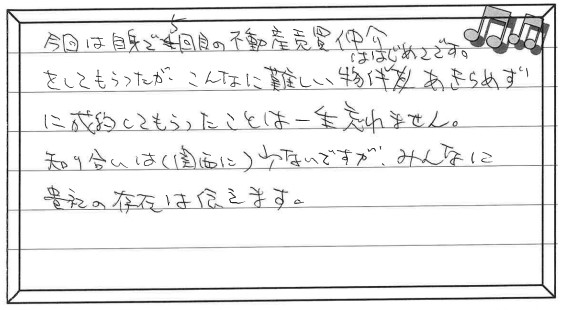 今回は自身で5回目の不動産売買仲介
をしてもらったが、こんなに難しい物件ははじめてです。あきらめず
に成約してもらったことは一生忘れません。
知り合いは(関西に)少ないですが、みんなに
貴社の存在は伝えます。